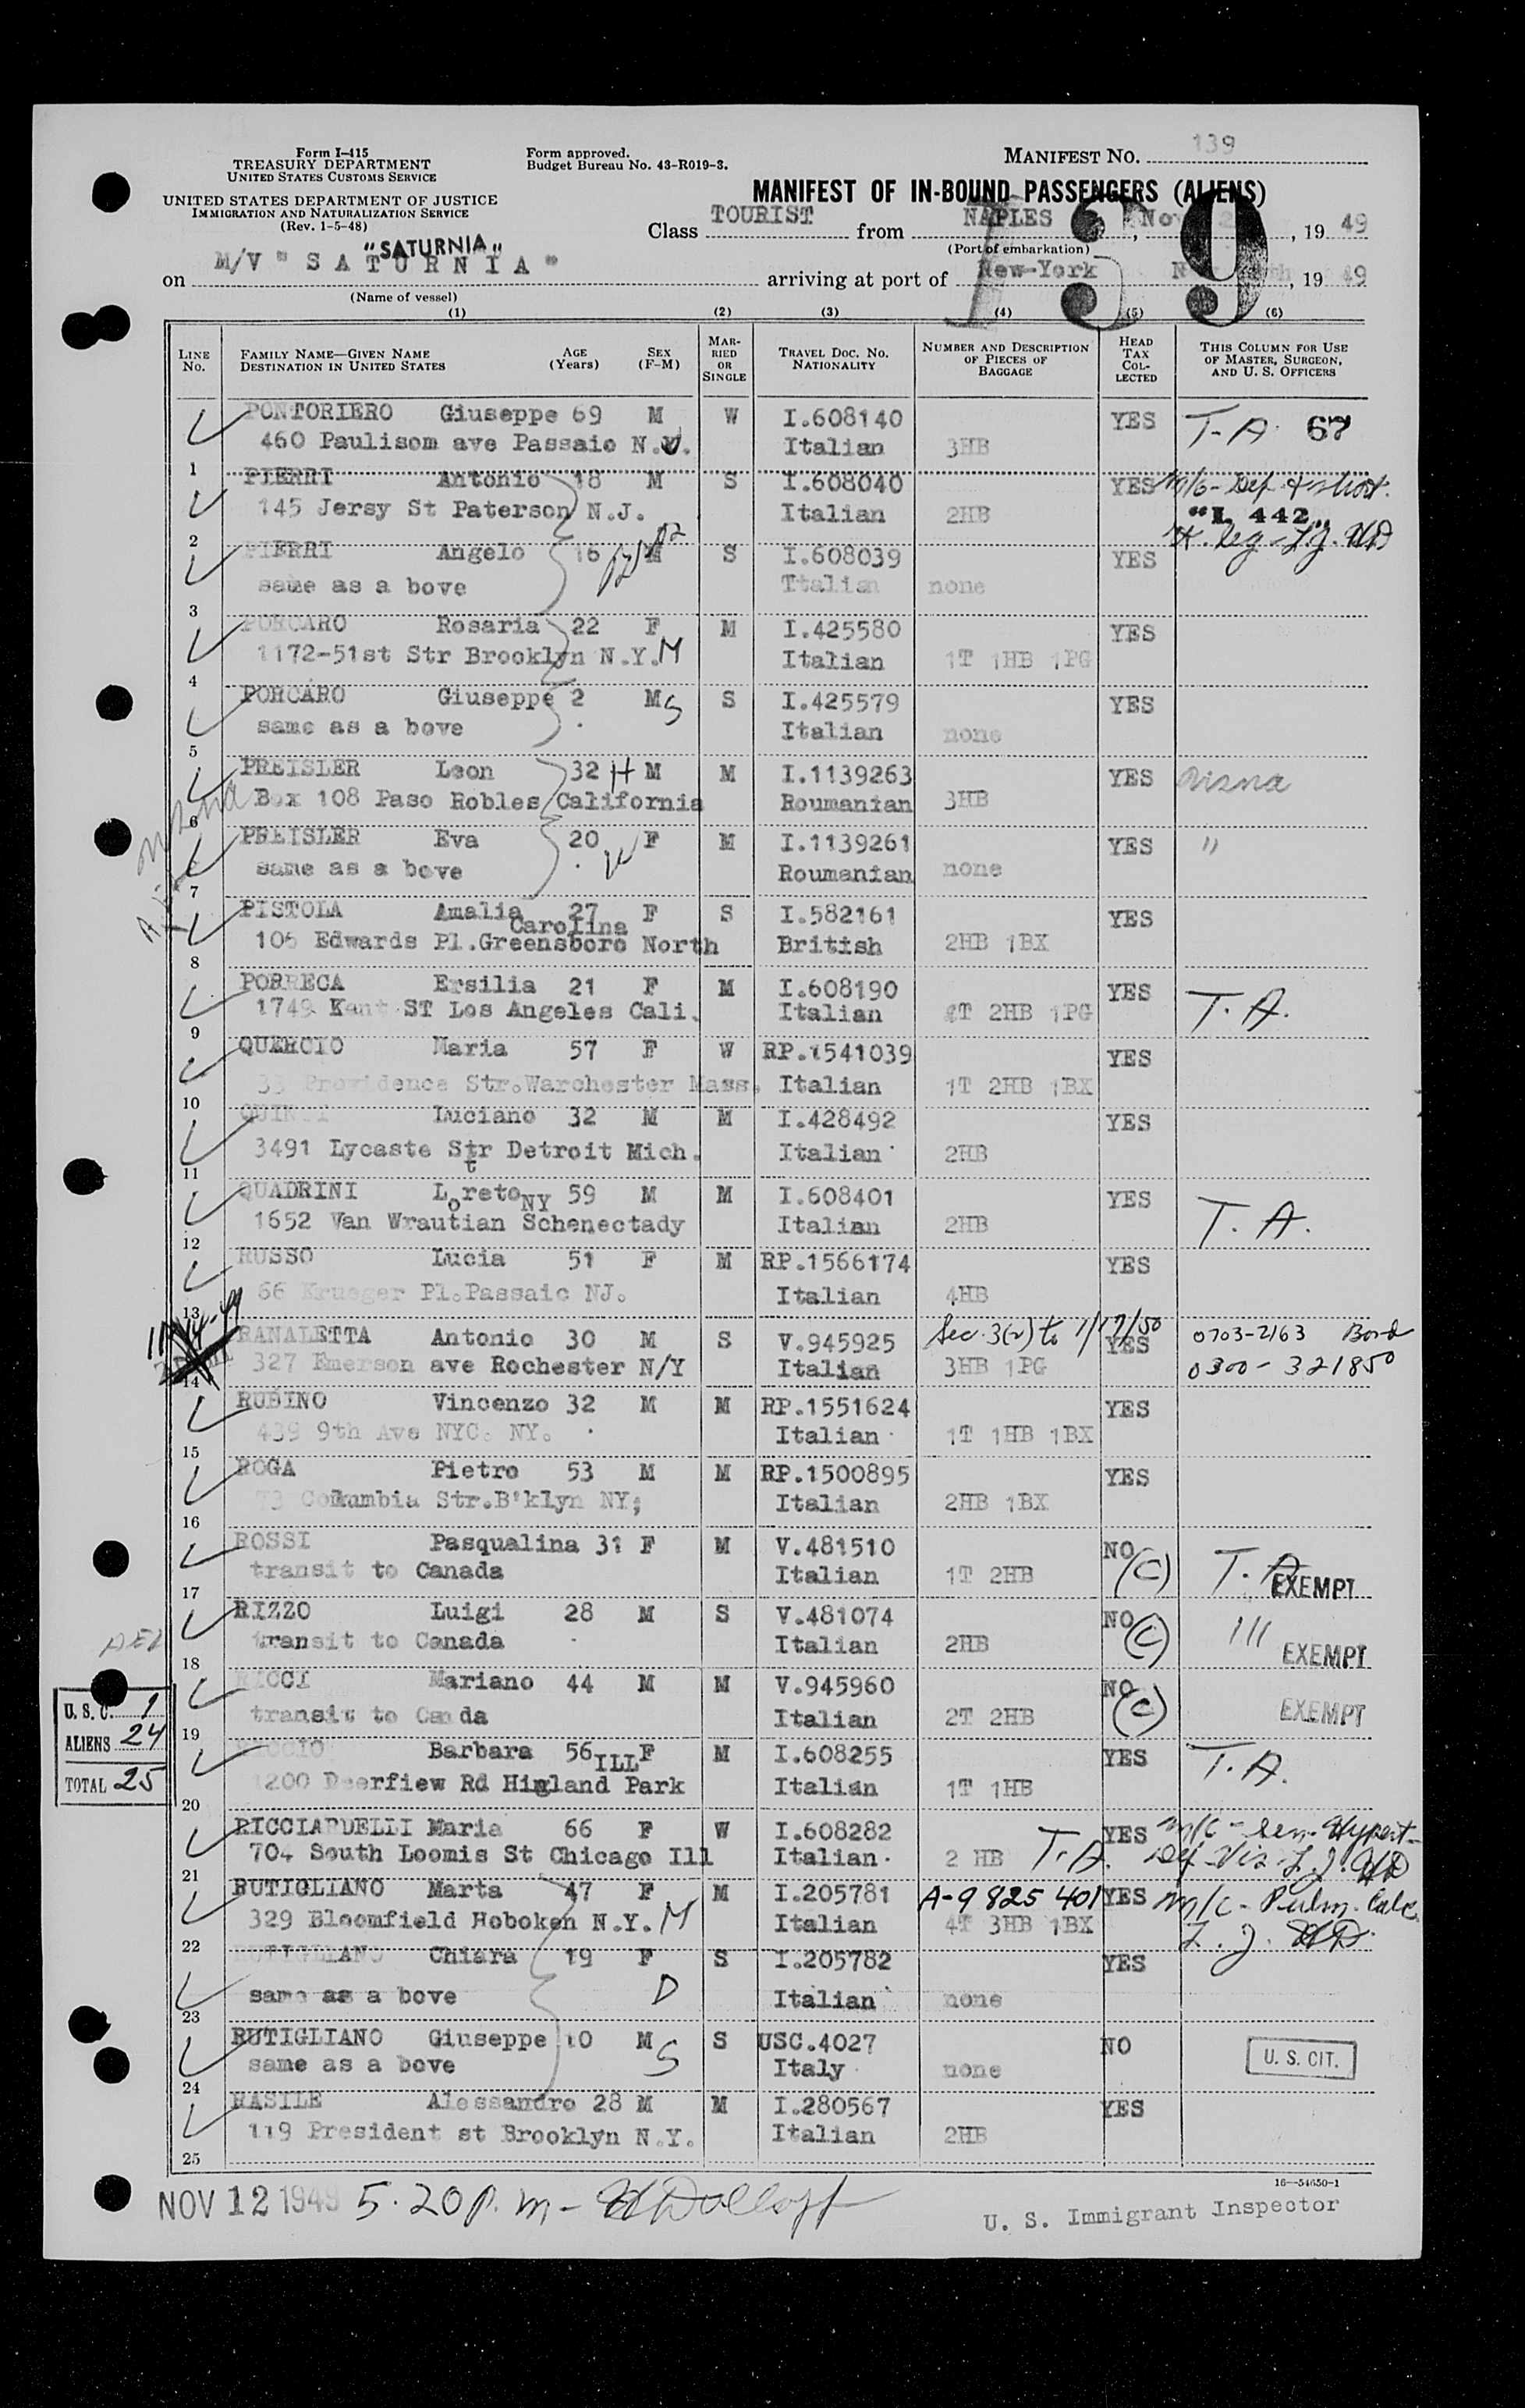 Form I-415
TREASURY DEPARTMENT
UNITED STATES CUSTOMS SERVICE
UNITED STATES DEPARTMENT OF JUSTICE
IMMIGRATION AND NATURALIZATION SERVICE
(Rev. 1-5-48)
Form approved.
Budget Bureau No. 43-R019-3.
MANIFEST NO. 139
MANIFEST OF IN-BOUND PASSENGERS (ALIENS)
139
Class TOURIST from NAPLES, Nov, 19 49
(Port of embarkation)
"SATURNIA"
on M/V "SATURNIA" arriving at port of New-York, 19 49
(Name of vessel)
(1) (2) (3) (4) (5) (6)
LINE No. FAMILY NAME—GIVEN NAME DESTINATION IN UNITED STATES AGE (Years) SEX (F-M) MARRIED OR SINGLE TRAVEL DOC. NO. NATIONALITY NUMBER AND DESCRIPTION OF PIECES OF BAGGAGE HEAD TAX COLLECTED THIS COLUMN FOR USE OF MASTER, SURGEON, AND U. S. OFFICERS
PONTORIERO Giuseppe 69 M W I.608140 YES T.A. 67
460 Paulisom ave Passaic N.J. Italian 3HB
1
PIERRI Antonio 18 M S I.608040 YES
145 Jersy St Paterson N.J. Italian 2HB "I 442"
2
PIERRI Angelo 16 M S I.608039 YES
same as a bove Italian none
3
PORCARO Rosaria 22 F M I.425580 YES
1172-51st Str Brooklyn N.Y. M Italian 1T 1HB 1PG
4
PORCARO Giuseppe 2 M S S I.425579 YES
same as a bove Italian none
5
PREISLER Leon 32 H M M I.1139263 YES
Box 108 Paso Robles California Roumanian 3HB
6
PREISLER Eva 20 W F M I.1139261 YES "
same as a bove Roumanian none
7
PISTOLA Amalia 27 F S I.582161 YES
Carolina
106 Edwards Pl.Greensboro North British 2HB 1BX
8
PORRECA Ersilia 21 F M I.608190 YES T.A.
1749 Kent ST Los Angeles Cali. Italian 1T 2HB 1PG
9
QUERCIO Maria 57 F W RP.1541039 YES
33 Providence Str.Warchester Mass. Italian 1T 2HB 1BX
10
Luciano 32 M M I.428492 YES
3491 Lycaste Str Detroit Mich. Italian 2HB
11
QUADRINI Loreto NY 59 M M I.608401 YES T. A.
1652 Van Wrautian Schenectady Italian 2HB
12
RUSSO Lucia 51 F M RP.1566174 YES
66 Krueger Pl.Passaic NJ. Italian 4HB
13
RANALETTA Antonio 30 M S V.945925 Sec. 3(2) to 1/17/50 YES 0703-2163 Bond
327 Emerson ave Rochester N/Y Italian 3HB 1PG 0300-321850
14
RUBINO Vincenzo 32 M M RP.1551624 YES
439 9th Ave NYC. NY. Italian 1T 1HB 1BX
15
ROGA Pietro 53 M M RP.1500895 YES
73 Columbia Str.B'klyn NY; Italian 2HB 1BX
16
ROSSI Pasqualina 31 F M V.481510 NO (C) T.A.
transit to Canada Italian 1T 2HB EXEMPT
17
RIZZO Luigi 28 M S V.481074 NO (C)
transit to Canada Italian 2HB EXEMPT
18
RICCI Mariano 44 M M V.945960 NO (C)
transit to Canada Italian 2T 2HB EXEMPT
19
U. S. C. 1
ALIENS 24
TOTAL 25
Barbara 56 F M I.608255 YES T.A.
ILL
1200 Deerfiew Rd Higland Park Italian 1T 1HB
20
RICCIARDELLI Maria 66 F W I.608282 YES m/c - Sen. Hypert-
704 South Loomis St Chicago Ill Italian 2 HB T.A.
21
RUTIGLIANO Marta 47 F M I.205781 A-9825401 YES m/c - Pulm. Calc.
329 Bloomfield Hoboken N.Y. M Italian 4T 3HB 1BX
22
RUTIGLIANO Chiara 19 F S I.205782 YES
same as a bove D Italian none
23
RUTIGLIANO Giuseppe 10 M S S USC.4027 NO
same as a bove Italy none U. S. CIT.
24
RASILE Alessandro 28 M M I.280567 YES
119 President st Brooklyn N.Y. Italian 2HB
25
16—54650-1
NOV 12 1949 5.20 p.m-
U. S. Immigrant Inspector